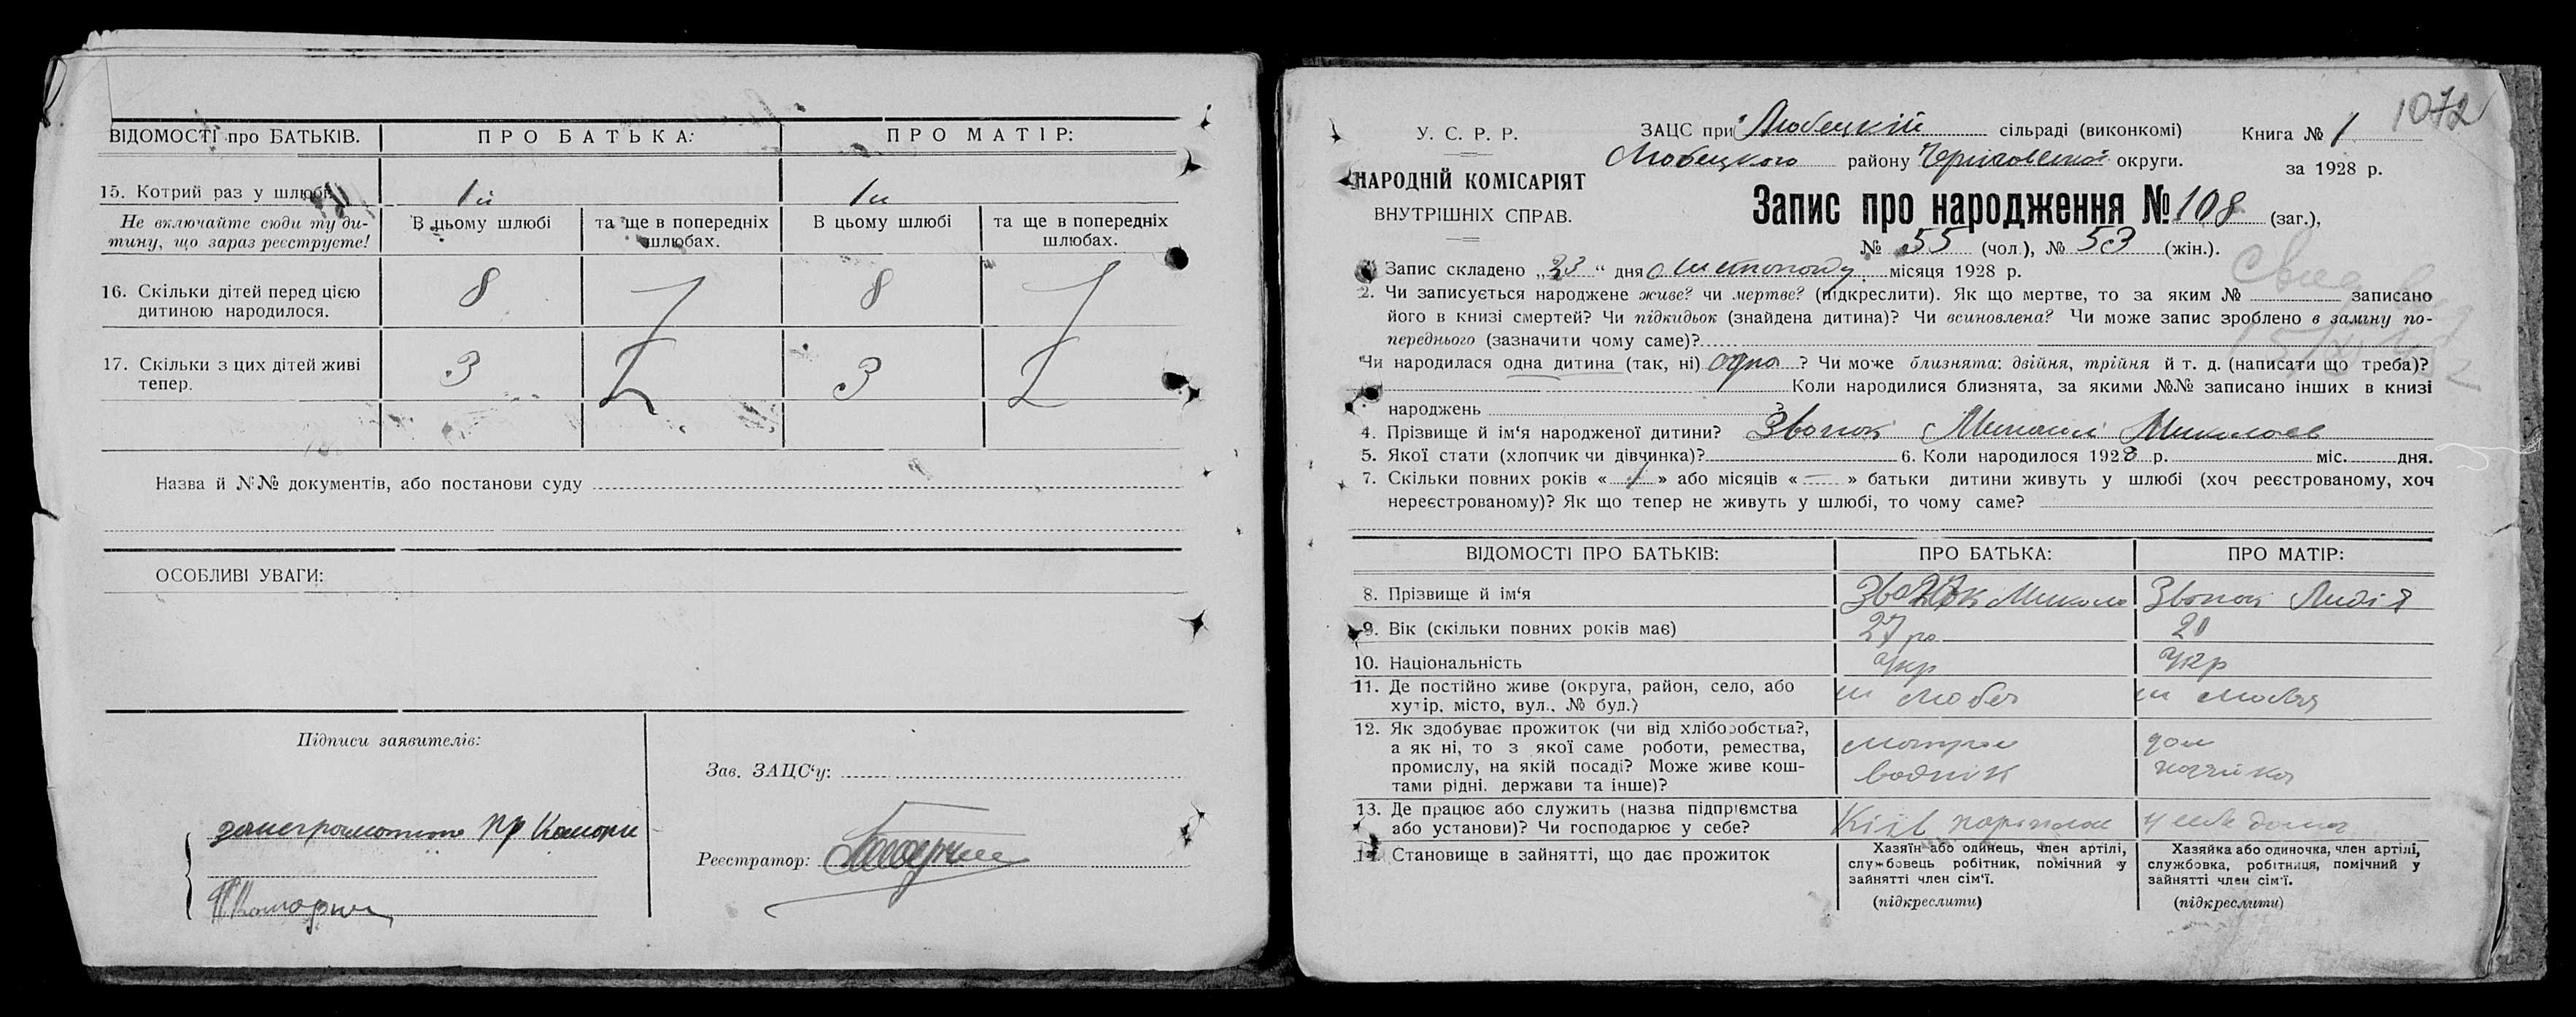 ВІДОМОСТІ про БАТЬКІВ. ПРО БАТЬКА: ПРО МАТІР:
15. Котрий раз у шлюбі 1й 1й
Не включайте сюди ту ди- В цьому шлюбі та ще в попередніх В цьому шлюбі та ще в попередніх
тину, що зараз реєструєте! шлюбах. шлюбах.
16. Скільки дітей перед цією 8 8
дитиною народилося.
17. Скільки з цих дітей живі 3 3
тепер.
Назва й №№ документів, або постанови суду
ОСОБЛИВІ УВАГИ:
Підписи заявителів:
Зав. ЗАЦС‘у:
Реєстратор:
1072
У. С. Р. Р. ЗАЦС при Любецкій сільраді (виконкомі) Книга № 1
Любецкого району округи. за 1928 р.
НАРОДНІЙ КОМІСАРІЯТ
ВНУТРІШНІХ СПРАВ.
Запис про народження № 108 (заг.),
№ 55 (чол.), № 53 (жін.).
Запис складено „23“ дня листопаду місяця 1928 р.
2. Чи записується народжене живе? чи мертве? (підкреслити). Як що мертве, то за яким № записано
його в книзі смертей? Чи підкидьок (знайдена дитина)? Чи всиновлена? Чи може запис зроблено в заміну по-
переднього (зазначити чому саме)?
Чи народилася одна дитина (так, ні) одна ? Чи може близнята: двійня, трійня й т. д. (написати що треба)?
Коли народилися близнята, за якими №№ записано інших в книзі
народжень
4. Прізвище й ім‘я народженої дитини? Звонок Михаил Миколаев
5. Якої стати (хлопчик чи дівчинка)? 6. Коли народилося 1928 р. міс. дня.
7. Скільки повних років « 1 » або місяців « — » батьки дитини живуть у шлюбі (хоч реєстрованому, хоч
нереєстрованому)? Як що тепер не живуть у шлюбі, то чому саме?
ВІДОМОСТІ ПРО БАТЬКІВ: ПРО БАТЬКА: ПРО МАТІР:
8. Прізвище й ім‘я Звонок Микола Звонок Лидія
9. Вік (скільки повних років має) 27 20
10. Національність Укр Укр
11. Де постійно живе (округа, район, село, або м Любеч м Любеч
хутір, місто, вул., № буд.)
12. Як здобуває прожиток (чи від хліборобства?, матрос дом
а як ні, то з якої саме роботи, ремества,
промислу, на якій посаді? Може живе кош- водник хазяйка
тами рідні, держави та інше)?
13. Де працює або служить (назва підприємства Київ у себе дома
або установи)? Чи господарює у себе?
14. Становище в зайнятті, що дає прожиток Хазяїн або одинець, член артілі, Хазяйка або одиночка, член артілі,
службовець робітник, помічний у службовка, робітниця, помічний у
зайнятті член сім‘ї. зайнятті член сім‘ї.
(підкреслити) (підкреслити)